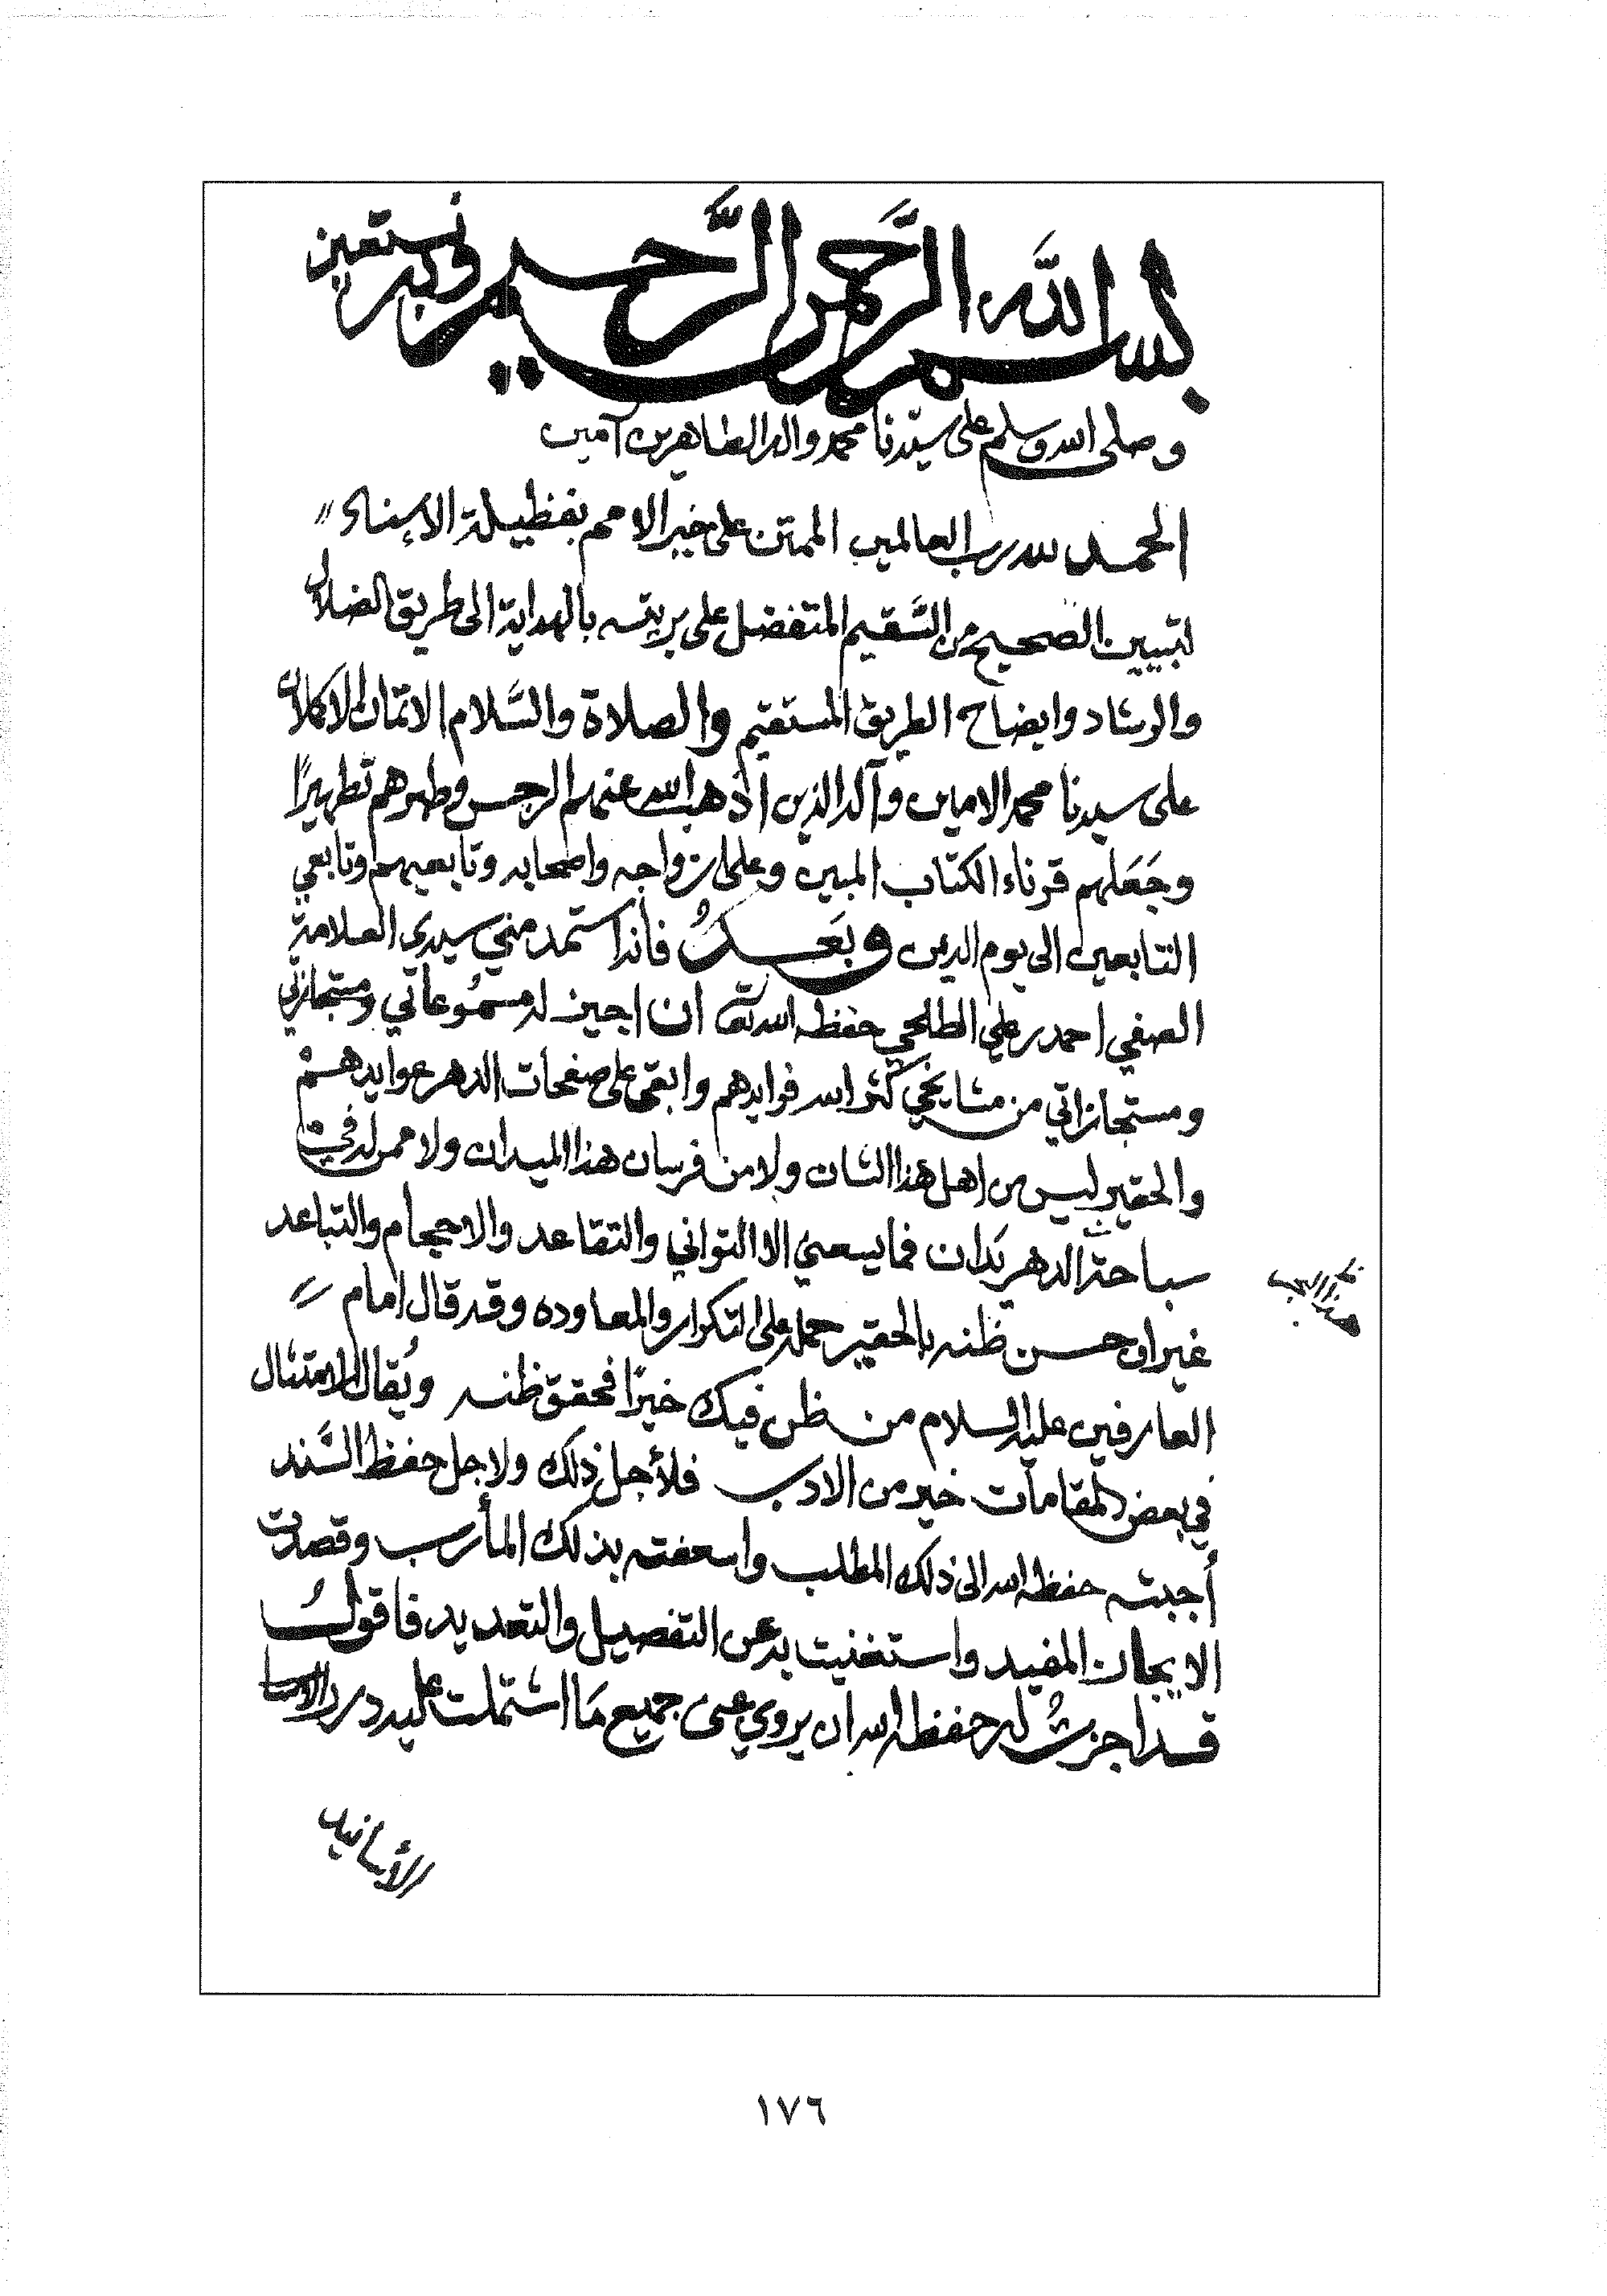 بسم الله الرحمن الرحيم وبه نستعين
وصلى الله وسلم على سيدنا محمد واله الطاهرين آمين
الحمد لله رب العالمين الممتن على خير الامم بفظيلة الاسناد
لتبيين الصحيح من السَّقيم المتفضل على بريته بالهداية الى طريق الضلال
والرشاد وايضاح الطريق المستقيم والصلاة والسَّلام الاتمان الاكملان
على سيدنا محمد الامين وآله الذين اذهب الله عنهم الرجس وطهرهم تطهيرًا
وجَعَلهم قرناء الكتاب المبين وعلى ازواجه واصحابه وتابعيهم وتابعي
التابعين الى يوم الدين وبَعدُ فأنه استمد مني سيدي العلامة
الصفي احمد بن علي الطلحي حفظه الله تعالى ان اجيز له مسموُعاتي ومستجازاتي
ومستجازاتي من مشايخي كثر الله فوايدهم وابقى على صفحات الدهر عوايدهم
والحقير ليس من اهل هذا الشان ولا من فرسان هذا الميدان ولا ممن له في
سباحة الدهر يَدان فما يسعني الا التواني والتقاعد والاحجام والتباعد
هذا
غير ان حسن ظنه بالحقير حمله على التكرار والمعاوده وقد قال امام
العارفين عليه السلام من ظن فيك خيرًا فحقق ظنه ويُقال الامتثال
في بعض المقامات خير من الادب فلأجل ذلك ولاجل حفظ السَّند
أجبته حفظه الله الى ذلك المطلب واسعفته بذلك المأرب وقصدت
الايجاز المفيد واستغنيت به عن التفصيل والتعديد فاقولُ
قد اجزتُ له حفظه الله ان يروي عني جميع مَا اشتملت عليه درر الاسا
الأسانيد
١٧٦